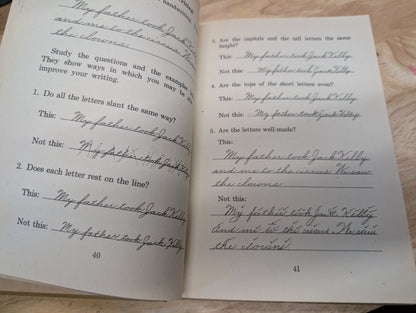 handwriting
My father took Jack
and me to the circus We
the clowns.
Study the questions and the examples
They show ways in which you may be
improve your writing.
1. Do all the letters slant the same way?
This: My father took Jack Kelly
Not this: My father took Jack Kelly
2. Does each letter rest on the line?
This: My father took Jack Kelly
Not this: My father took Jack Kelly
40
3. Are the capitals and the tall letters the same
height?
This: My father took Jack Kelly
Not this: My father took Jack Kelly
4. Are the tops of the short letters even?
This: My father took Jack Kelly
Not this: My father took Jack Kelly
5. Are the letters well-made?
This:
My father took Jack Kelly
and me to the circus We saw
the clowns
Not this:
My father took Jack Kelly
and me to the circus We saw
the clowns
41